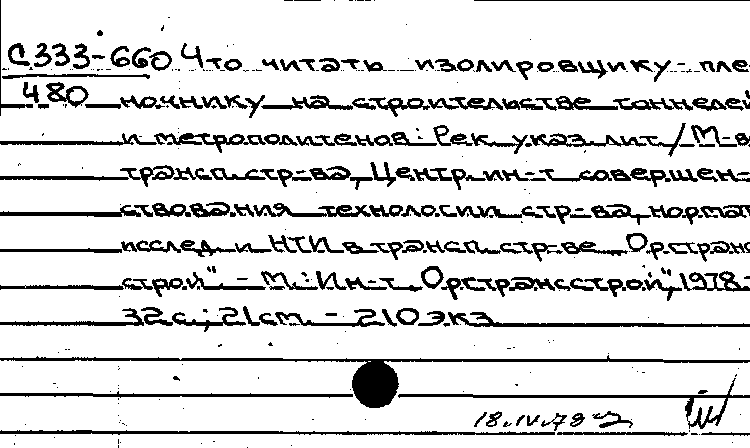 С333-660 Что читать изолировщику-пле-
480 ночнику на строительстве тоннелей
и метрополитенов: Рек. указ. лит./М-во
трансп. стр-ва, Центр. ин-т совершен-
ствования технологии стр-ва, нормат.
исслед. и НТИ в трансп. стр-ве "Оргтранс-
строй". - М.: Ин-т "Оргтрансстрой", 1978.-
32 с.; 21 см. - 210 экз
18.IV.78